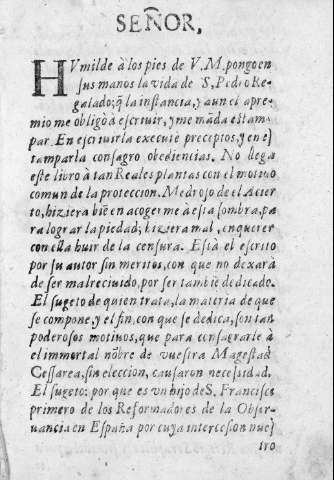 SEÑOR,
HVmilde à los pies de V. M. pongo en
sus manos la vida de S. Pedro Re-
galado; q̃ la instancia, y aun el apre-
mio me obligò à escriuir, y me mãda estam-
par. En escriuirla executè preceptos, y en es
tamparla consagro obediencias. No llega
este libro à tan Reales plantas con el motiuo
comun de la proteccion. Medroso de el Acier
to, hiziera biẽ en acogerme à esta sombra, pa
ra lograr la piedad; hiziera mal, en querer
con ella huir de la censura. Està el escrito
por su autor sin meritos, con que no dexarà
de ser mal reciuido, por ser tambiẽ dedicado.
El sugeto de quien trata, la materia de que
se compone, y el fin, con que se dedica, son tan
poderosos motiuos, que para consagrarle à
el immortal nõbre de vuestra Magestad
Cessarea, sin eleccion, causaron necesidad.
El sugeto: por que es vn hijo de S. Francisco
primero de los Reformadores de la Obser-
uancia en España por cuya intercesion nues
tro